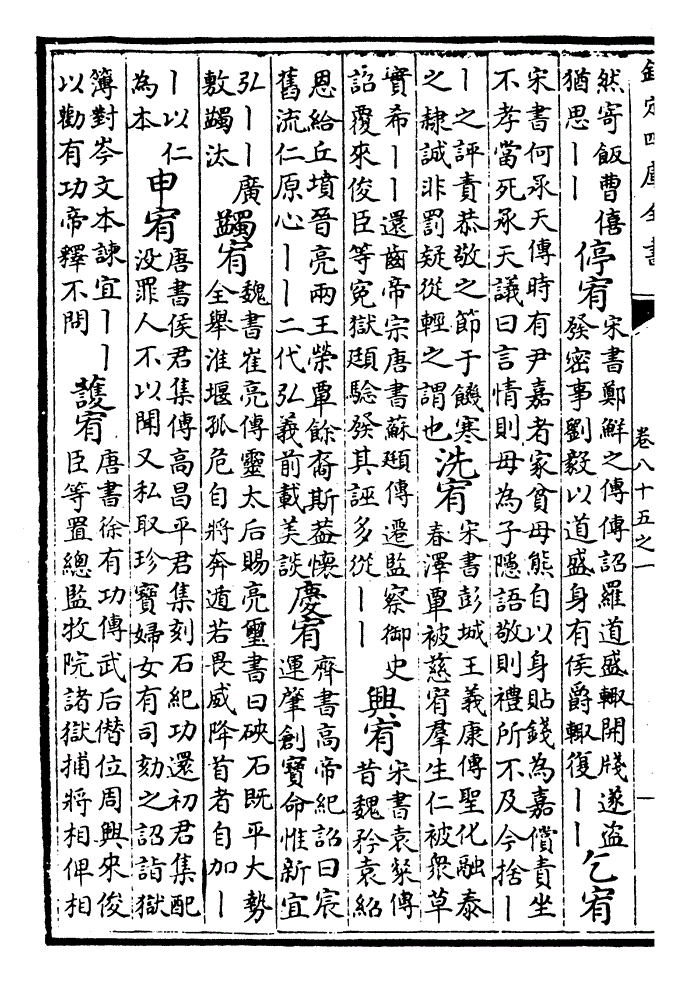 欽定四庫全書
卷八十五之一
一
然寄飯曹僖
猶思丨丨
停宥
宋書鄭鮮之傳傳詔羅道盛輙開牋遂盗
發密事劉毅以道盛身有侯爵輙復丨丨
乞宥
宋書何承天傳時有尹嘉者家貧母熊自以身貼錢為嘉償責坐
不孝當死承天議曰言情則母為子隱語敬則禮所不及今捨丨
丨之評責恭敬之節于饑寒
之隷誠非罰疑從輕之謂也
洗宥
宋書彭城王義康傳聖化融泰
春澤覃被慈宥羣生仁被衆草
實希丨丨還齒帝宗唐書蘇頲傳遷監察御史
詔覆來俊臣等寃獄頲驗發其誣多從丨丨
興宥
宋書袁粲傳
昔魏矜袁紹
恩給丘墳晉亮兩王榮覃餘裔斯葢懷
舊流仁原心丨丨二代弘義前載美談
慶宥
齊書高帝紀詔曰宸
運肇創寶命惟新宜
弘丨丨廣
敷蠲汰
蠲宥
魏書崔亮傳靈太后賜亮璽書曰硤石既平大勢
全舉淮堰孤危自將奔遁若畏威降首者自加丨
丨以仁
為本
申宥
唐書侯君集傳高昌平君集刻石紀功還初君集配
没罪人不以聞又私取珍寶婦女有司劾之詔詣獄
簿對岑文本諫宜丨丨
以勸有功帝釋不問
護宥
唐書徐有功傳武后僭位周興來俊
臣等置總監牧院諸獄捕將相俾相